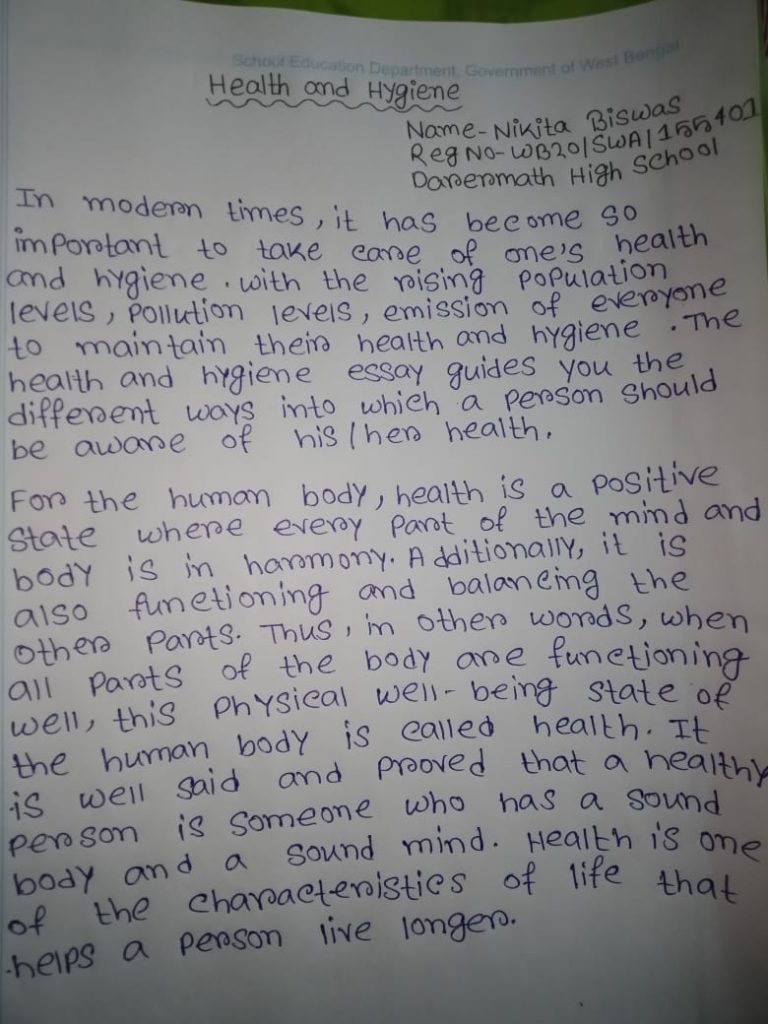 School Education Department, Government of West Bengal
Health and Hygiene
Name-Nikita Biswas
Reg No-WB20/SWA/155401
Darermath High School
In modern times, it has become so
important to take care of one's health
and hygiene. with the rising population
levels, pollution levels, emission of everyone
to maintain their health and hygiene. The
health and hygiene essay guides you the
different ways into which a person should
be aware of his/her health.
For the human body, health is a positive
state where every part of the mind and
body is in harmony. Additionally, it is
also functioning and balancing the
other parts. Thus, in other words, when
all parts of the body are functioning
well, this physical well-being state of
the human body is called health. It
is well said and proved that a healthy
person is someone who has a sound
body and a sound mind. Health is one
of the characteristics of life that
helps a person live longer.